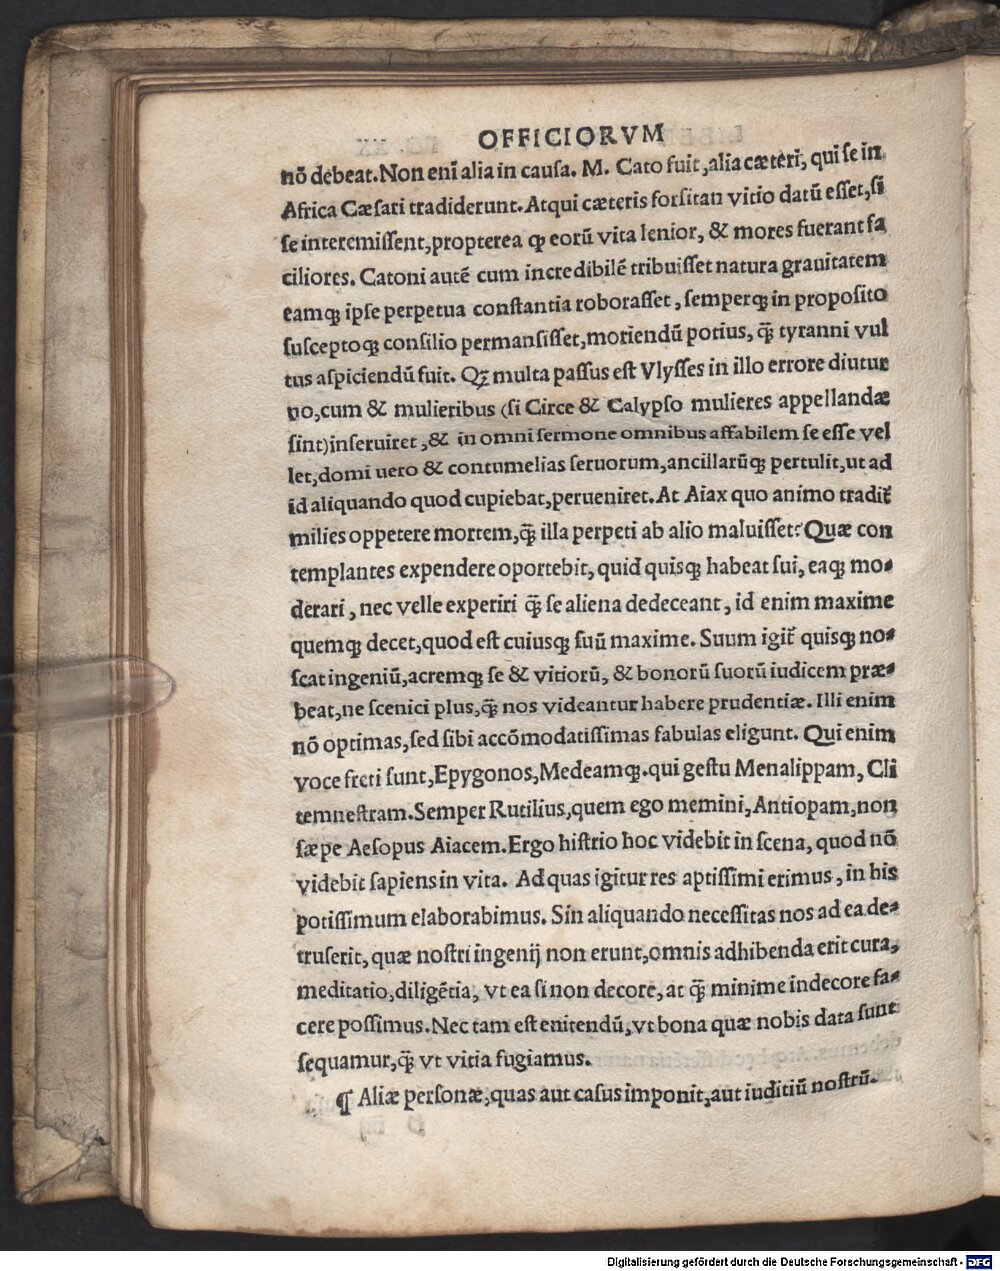 OFFICIORVM
nō debeat. Non enī alia in causa. M. Cato fuit, alia cæteri, qui se in
Africa Cæsari tradiderunt. Atqui cæteris forsitan vitio datū esset, si
se interemissent, propterea ꝙ eorū vita lenior, & mores fuerant fa
ciliores. Catoni autē cum incredibilē tribuisset natura grauitatem
eamqꝫ ipse perpetua constantia roborasset, semperqꝫ in proposito
susceptoqꝫ consilio permansisset, moriendū potius, q̄ꝫ tyranni vul
tus aspiciendū fuit. Qꝫ multa passus est Vlysses in illo errore diutur
no, cum & mulieribus (si Circe & Calypso mulieres appellandæ
sint) inseruiret, & in omni sermone omnibus affabilem se esse vel
let, domi uero & contumelias seruorum, ancillarūqꝫ pertulit, ut ad
id aliquando quod cupiebat, perueniret. At Aiax quo animo tradit̄
milies oppetere mortem, q̄ꝫ illa perpeti ab alio maluisset? Quæ con
templantes expendere oportebit, quid quisqꝫ habeat sui, eaqꝫ mo-
derari, nec velle experiri q̄ꝫ se aliena dedeceant, id enim maxime
quemqꝫ decet, quod est cuiusqꝫ suū maxime. Suum igit̄ quisqꝫ no-
scat ingeniū, acremqꝫ se & vitiorū, & bonorū suorū iudicem præ-
beat, ne scenici plus, q̄ꝫ nos videantur habere prudentiæ. Illi enim
nō optimas, sed sibi accōmodatissimas fabulas eligunt. Qui enim
voce freti sunt, Epygonos, Medeamqꝫ. qui gestu Menalippam, Cli
temnestram. Semper Rutilius, quem ego memini, Antiopam, non
sæpe Aesopus Aiacem. Ergo histrio hoc videbit in scena, quod nō
videbit sapiens in vita. Ad quas igitur res aptissimi erimus, in his
potissimum elaborabimus. Sin aliquando necessitas nos ad ea de-
truserit, quæ nostri ingenij non erunt, omnis adhibenda erit cura,
meditatio, diligētia, vt ea si non decore, at q̄ꝫ minime indecore fa-
cere possimus. Nec tam est enitendū, vt bona quæ nobis data sunt
sequamur, q̄ꝫ vt vitia fugiamus.
¶ Aliæ personæ, quas aut casus imponit, aut iuditiū nostrū.
Digitalisierung gefördert durch die Deutsche Forschungsgemeinschaft - DFG